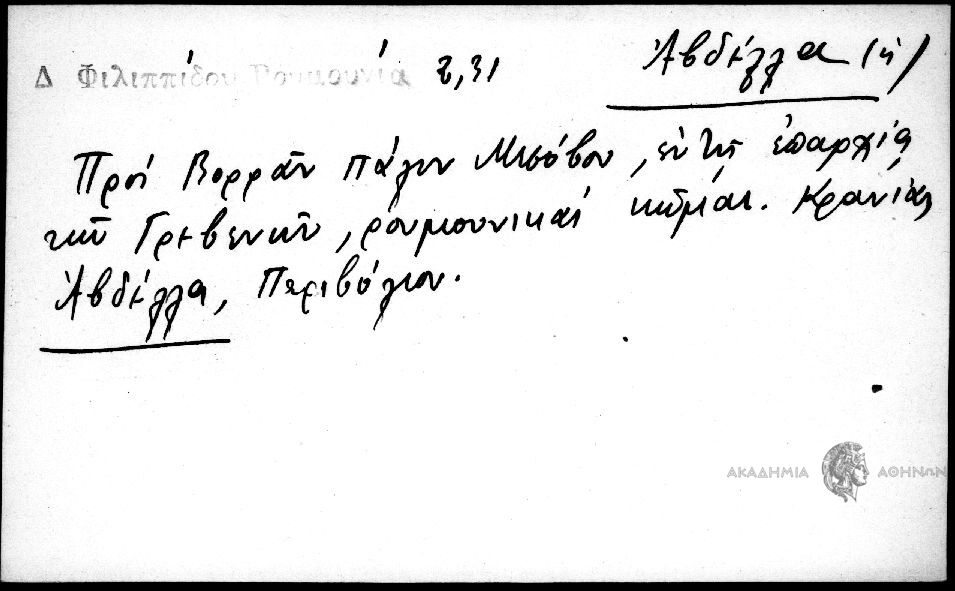 Δ Φιλιππίδου Ρουμουνία 2,31
Ἀβδέλλα (ἡ)
Πρὸς Βορρᾶν πάλιν Μετσόβου, ἐν τῇ ἐπαρχίᾳ
τῶν Γρεβενῶν, ρουμουνικαὶ κῶμαι. Κρανίας
Ἀβδέλλα, Περιβόλιον.
ΑΚΑΔΗΜΙΑ ΑΘΗΝΩΝ